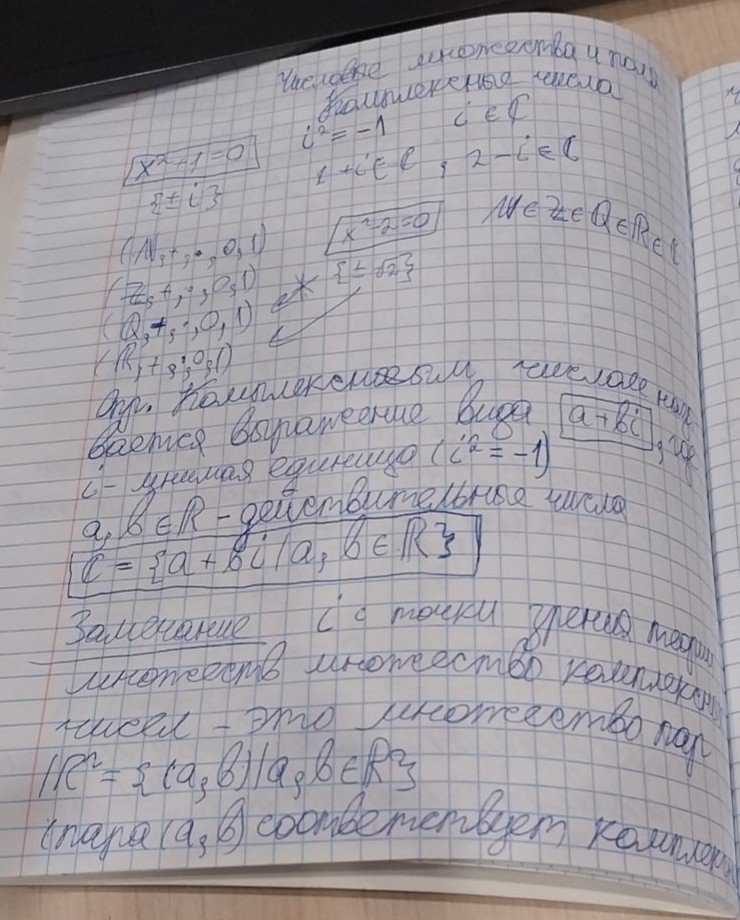 Числовые множества и поля
Комплексные числа
i² = -1 i ∈ ℂ
x²+1=0 1+i ∈ ℂ, 2-i ∈ ℂ
{±i}
(ℕ,+,·,0,1) x²-2=0 ℕ∈ℤ∈ℚ∈ℝ∈ℂ
(ℤ,+,·,0,1) {±√2}
(ℚ,+,·,0,1)
(ℝ,+,·,0,1)
Опр. Комплексным числом назы
вается выражение вида a+bi, где
i - мнимая единица (i² = -1)
a, b ∈ ℝ - действительные числа
ℂ = {a + bi | a, b ∈ ℝ}
Замечание i с точки зрения теории
множеств множество комплексных
чисел - это множество пар
ℝ² = {(a, b) | a, b ∈ ℝ}
(пара (a, b) соответствует комплексн